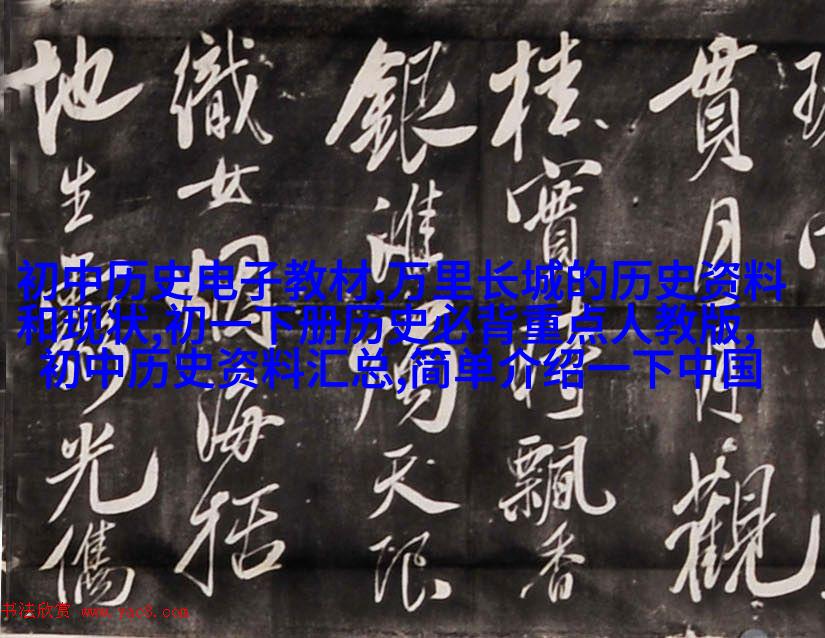 初中历史电子教材,万里长城的历史资料
和现状,初一下册历史必背重点人教版,
初中历史资料汇总,简单介绍一下中国
貫月月觀
桂實飄香
銀淮天限
織女海
地生光儁
书法欣赏 www.yac8.com